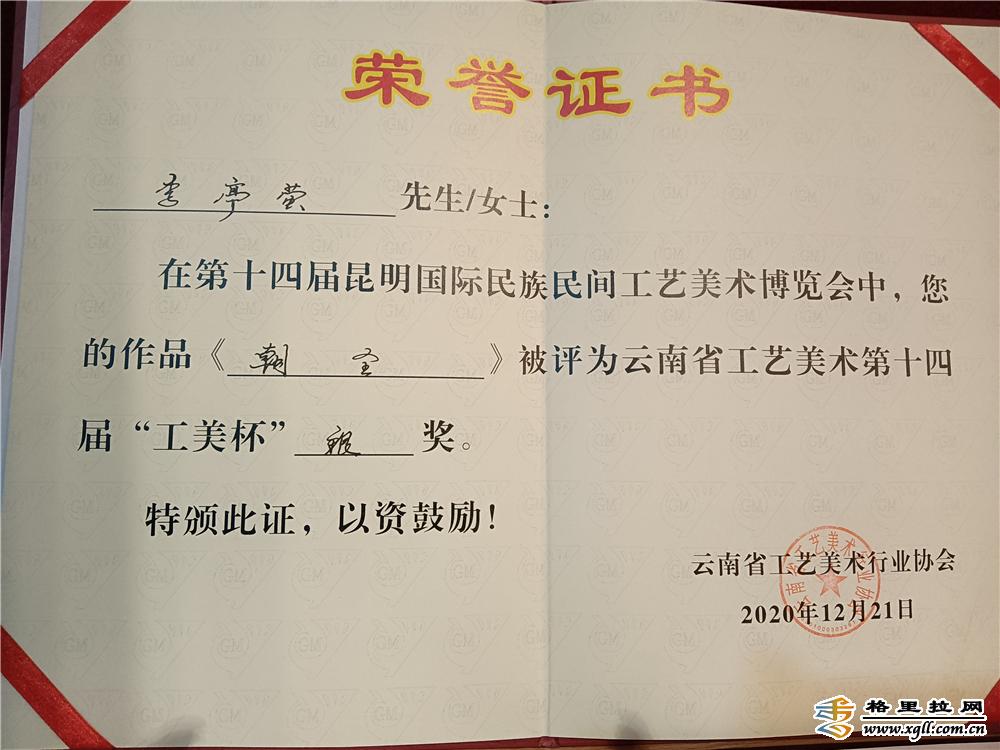 荣誉证书
李亭萤 先生/女士：
在第十四届昆明国际民族民间工艺美术博览会中，您
的作品《朝圣》被评为云南省工艺美术第十四
届“工美杯”银奖。
特颁此证，以资鼓励！
云南省工艺美术行业协会
2020年12月21日
云南省工艺美术行业协会
格里拉网
www.xgll.com.cn